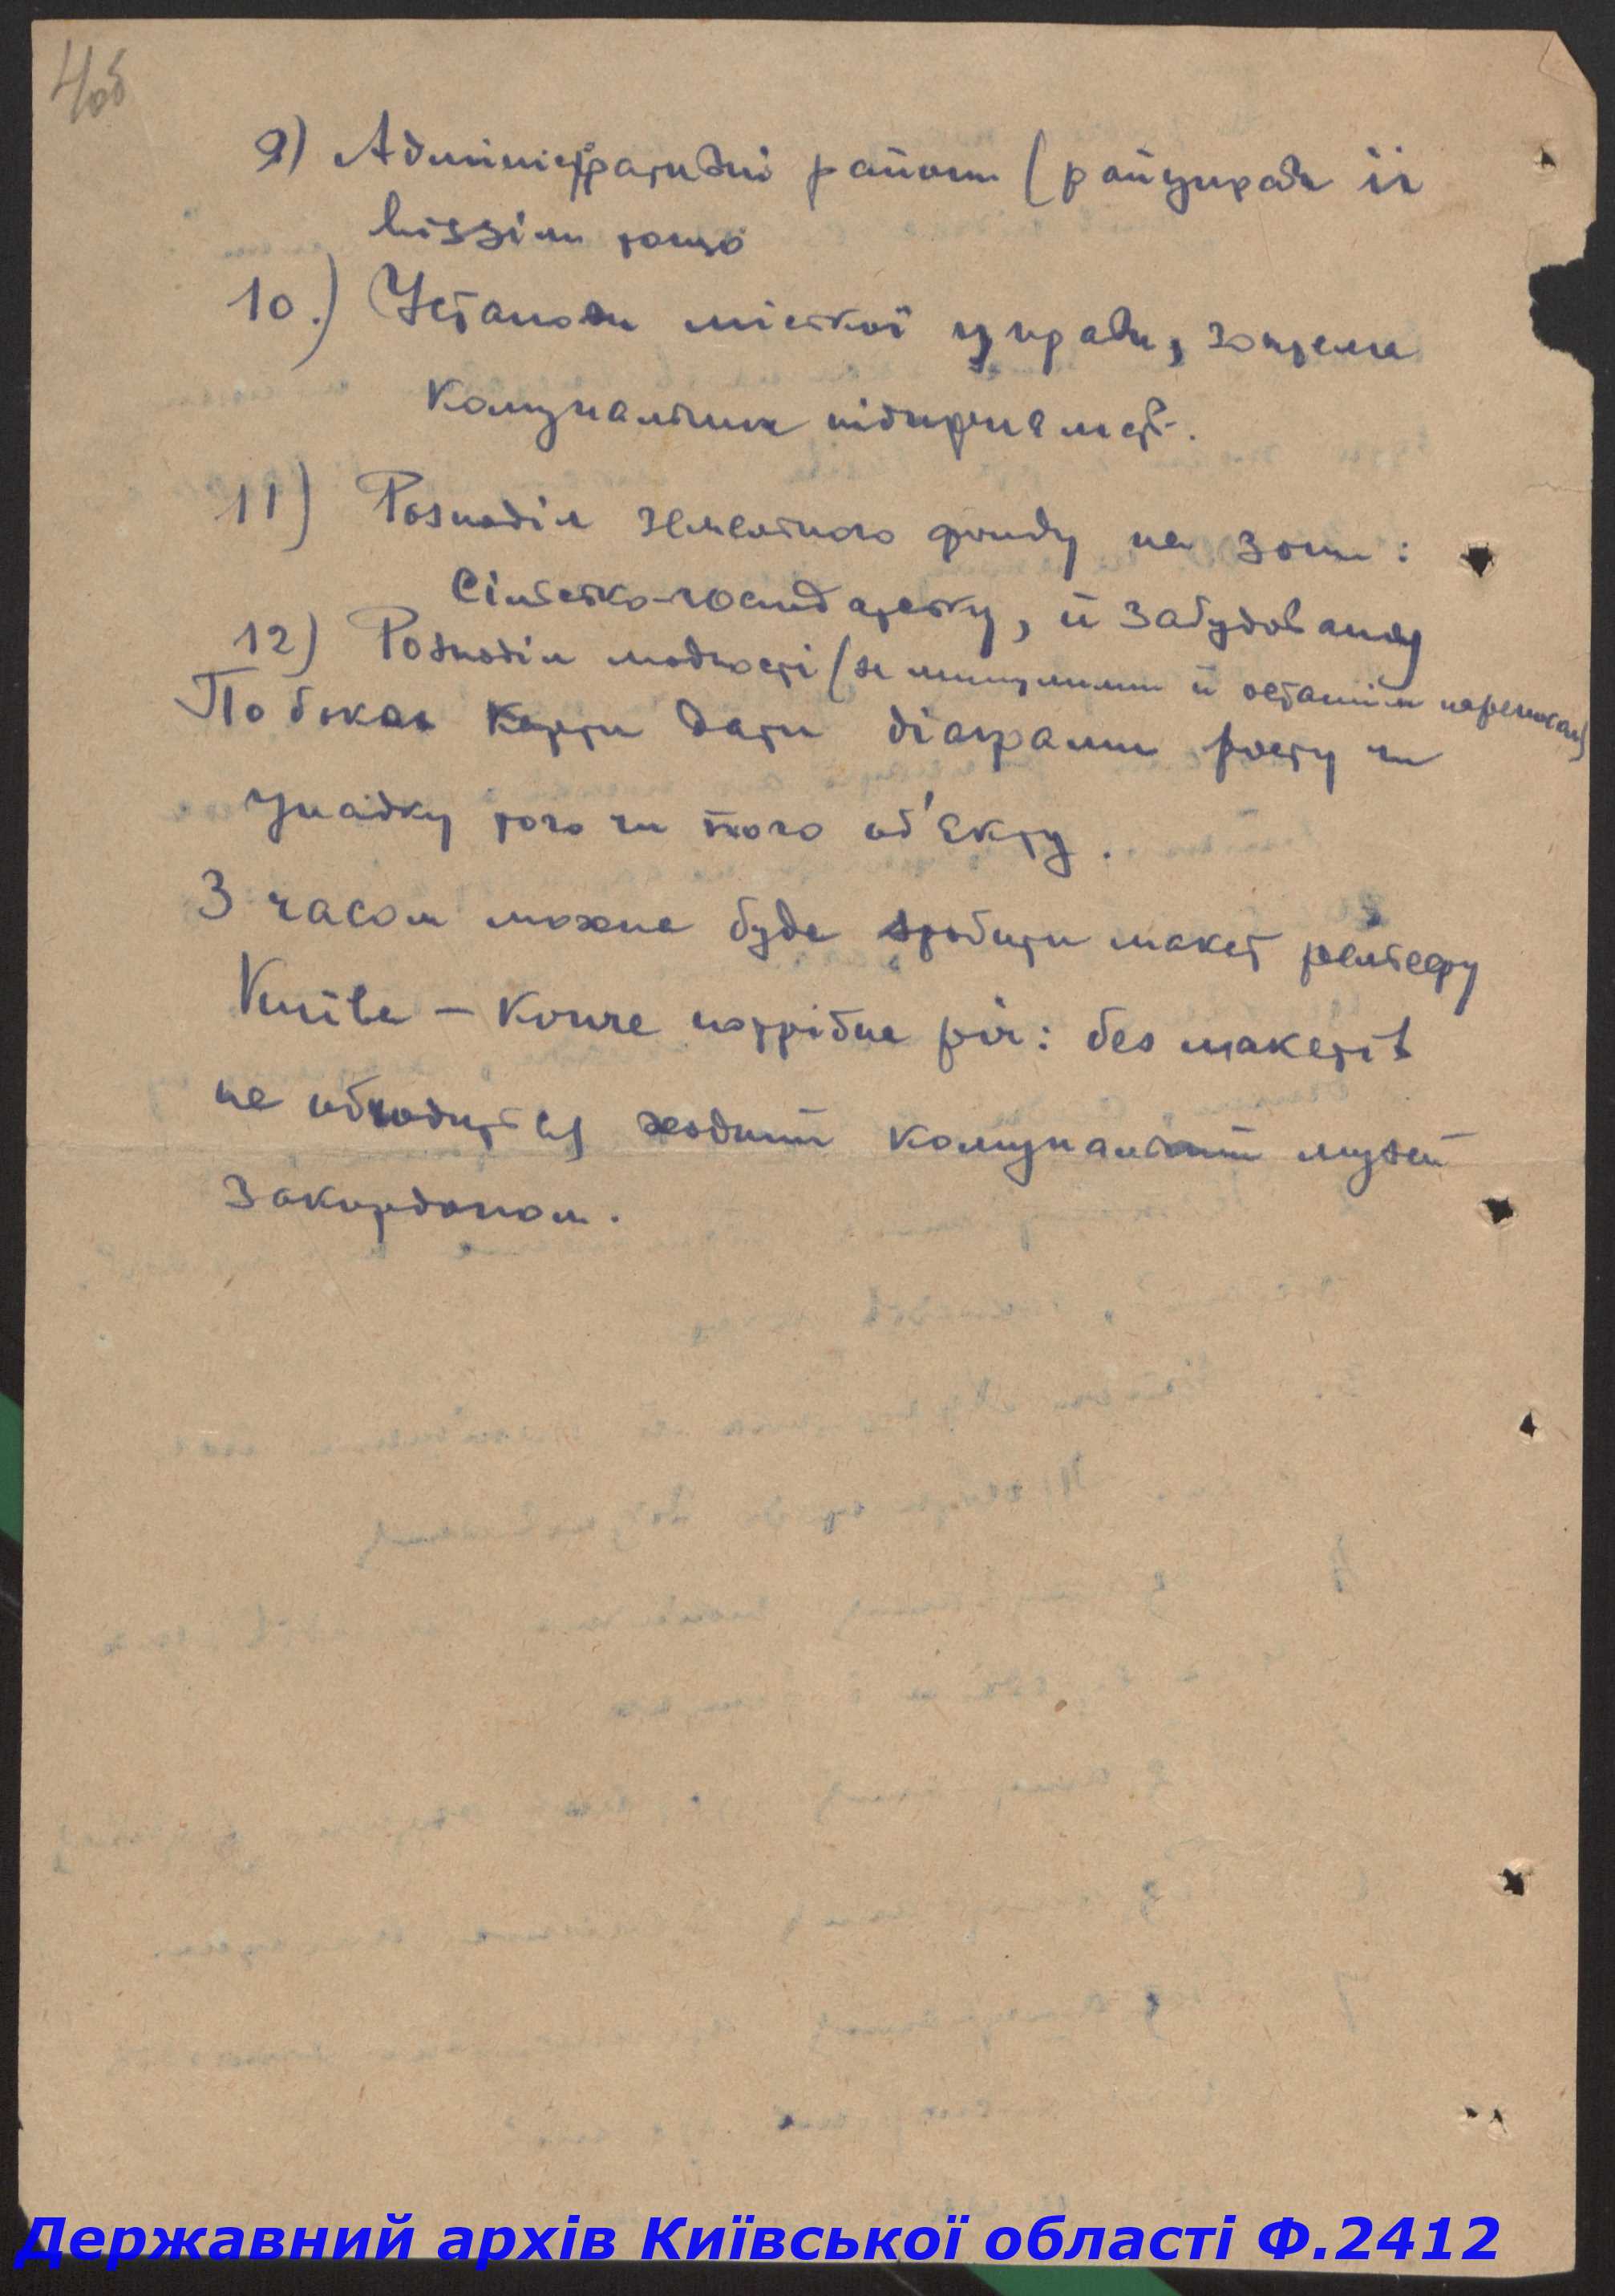 4об
9) Адміністративні райони (райуправи їх
відділи тощо
10.) Установи міської управи, зокрема
комунальних підприємств.
11) Розподіл земельного фонду на зони:
сільсько-господарську, й забудовану
12) Розподіл людності (за минулими й останнім переписам)
По боках карти дати діаграми росту чи
упадку того чи того об'єкту.
З часом можна буде зробити макет рельєфу
Києва – конче потрібна річ: без макетів
не обходиться жодний комунальний музей
закордоном.
Державний архів Київської області Ф.2412